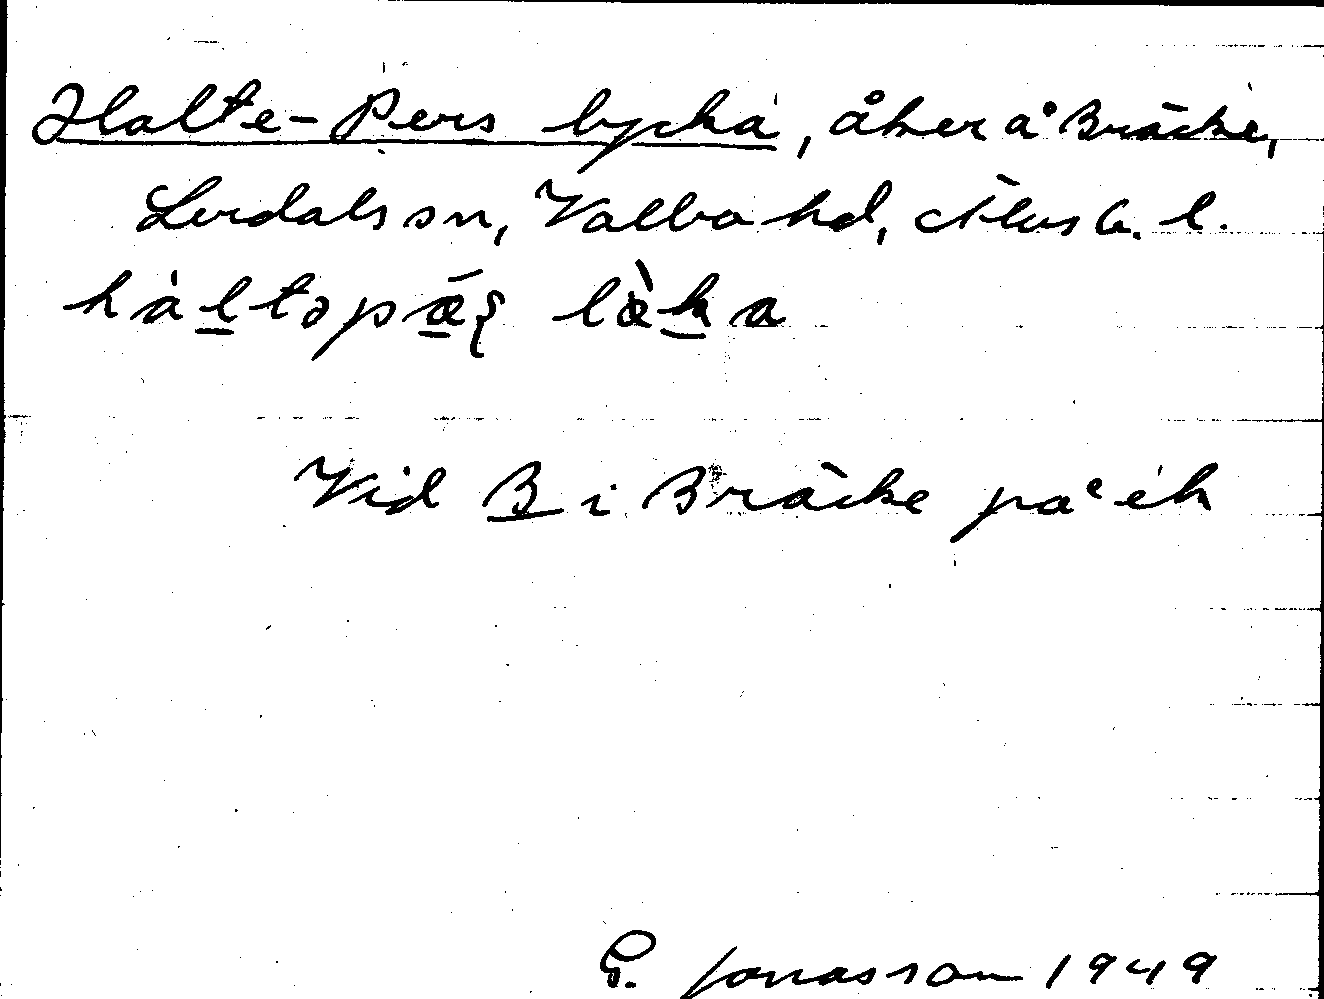 Halte-Pers lycka, åker å Bräcke,
Lerdals sn, Valbo hd, Älvsb. l.
hàltəpǽʂ læ̀ka
Vid B i Bräcke på ek
G. Jonasson 1949